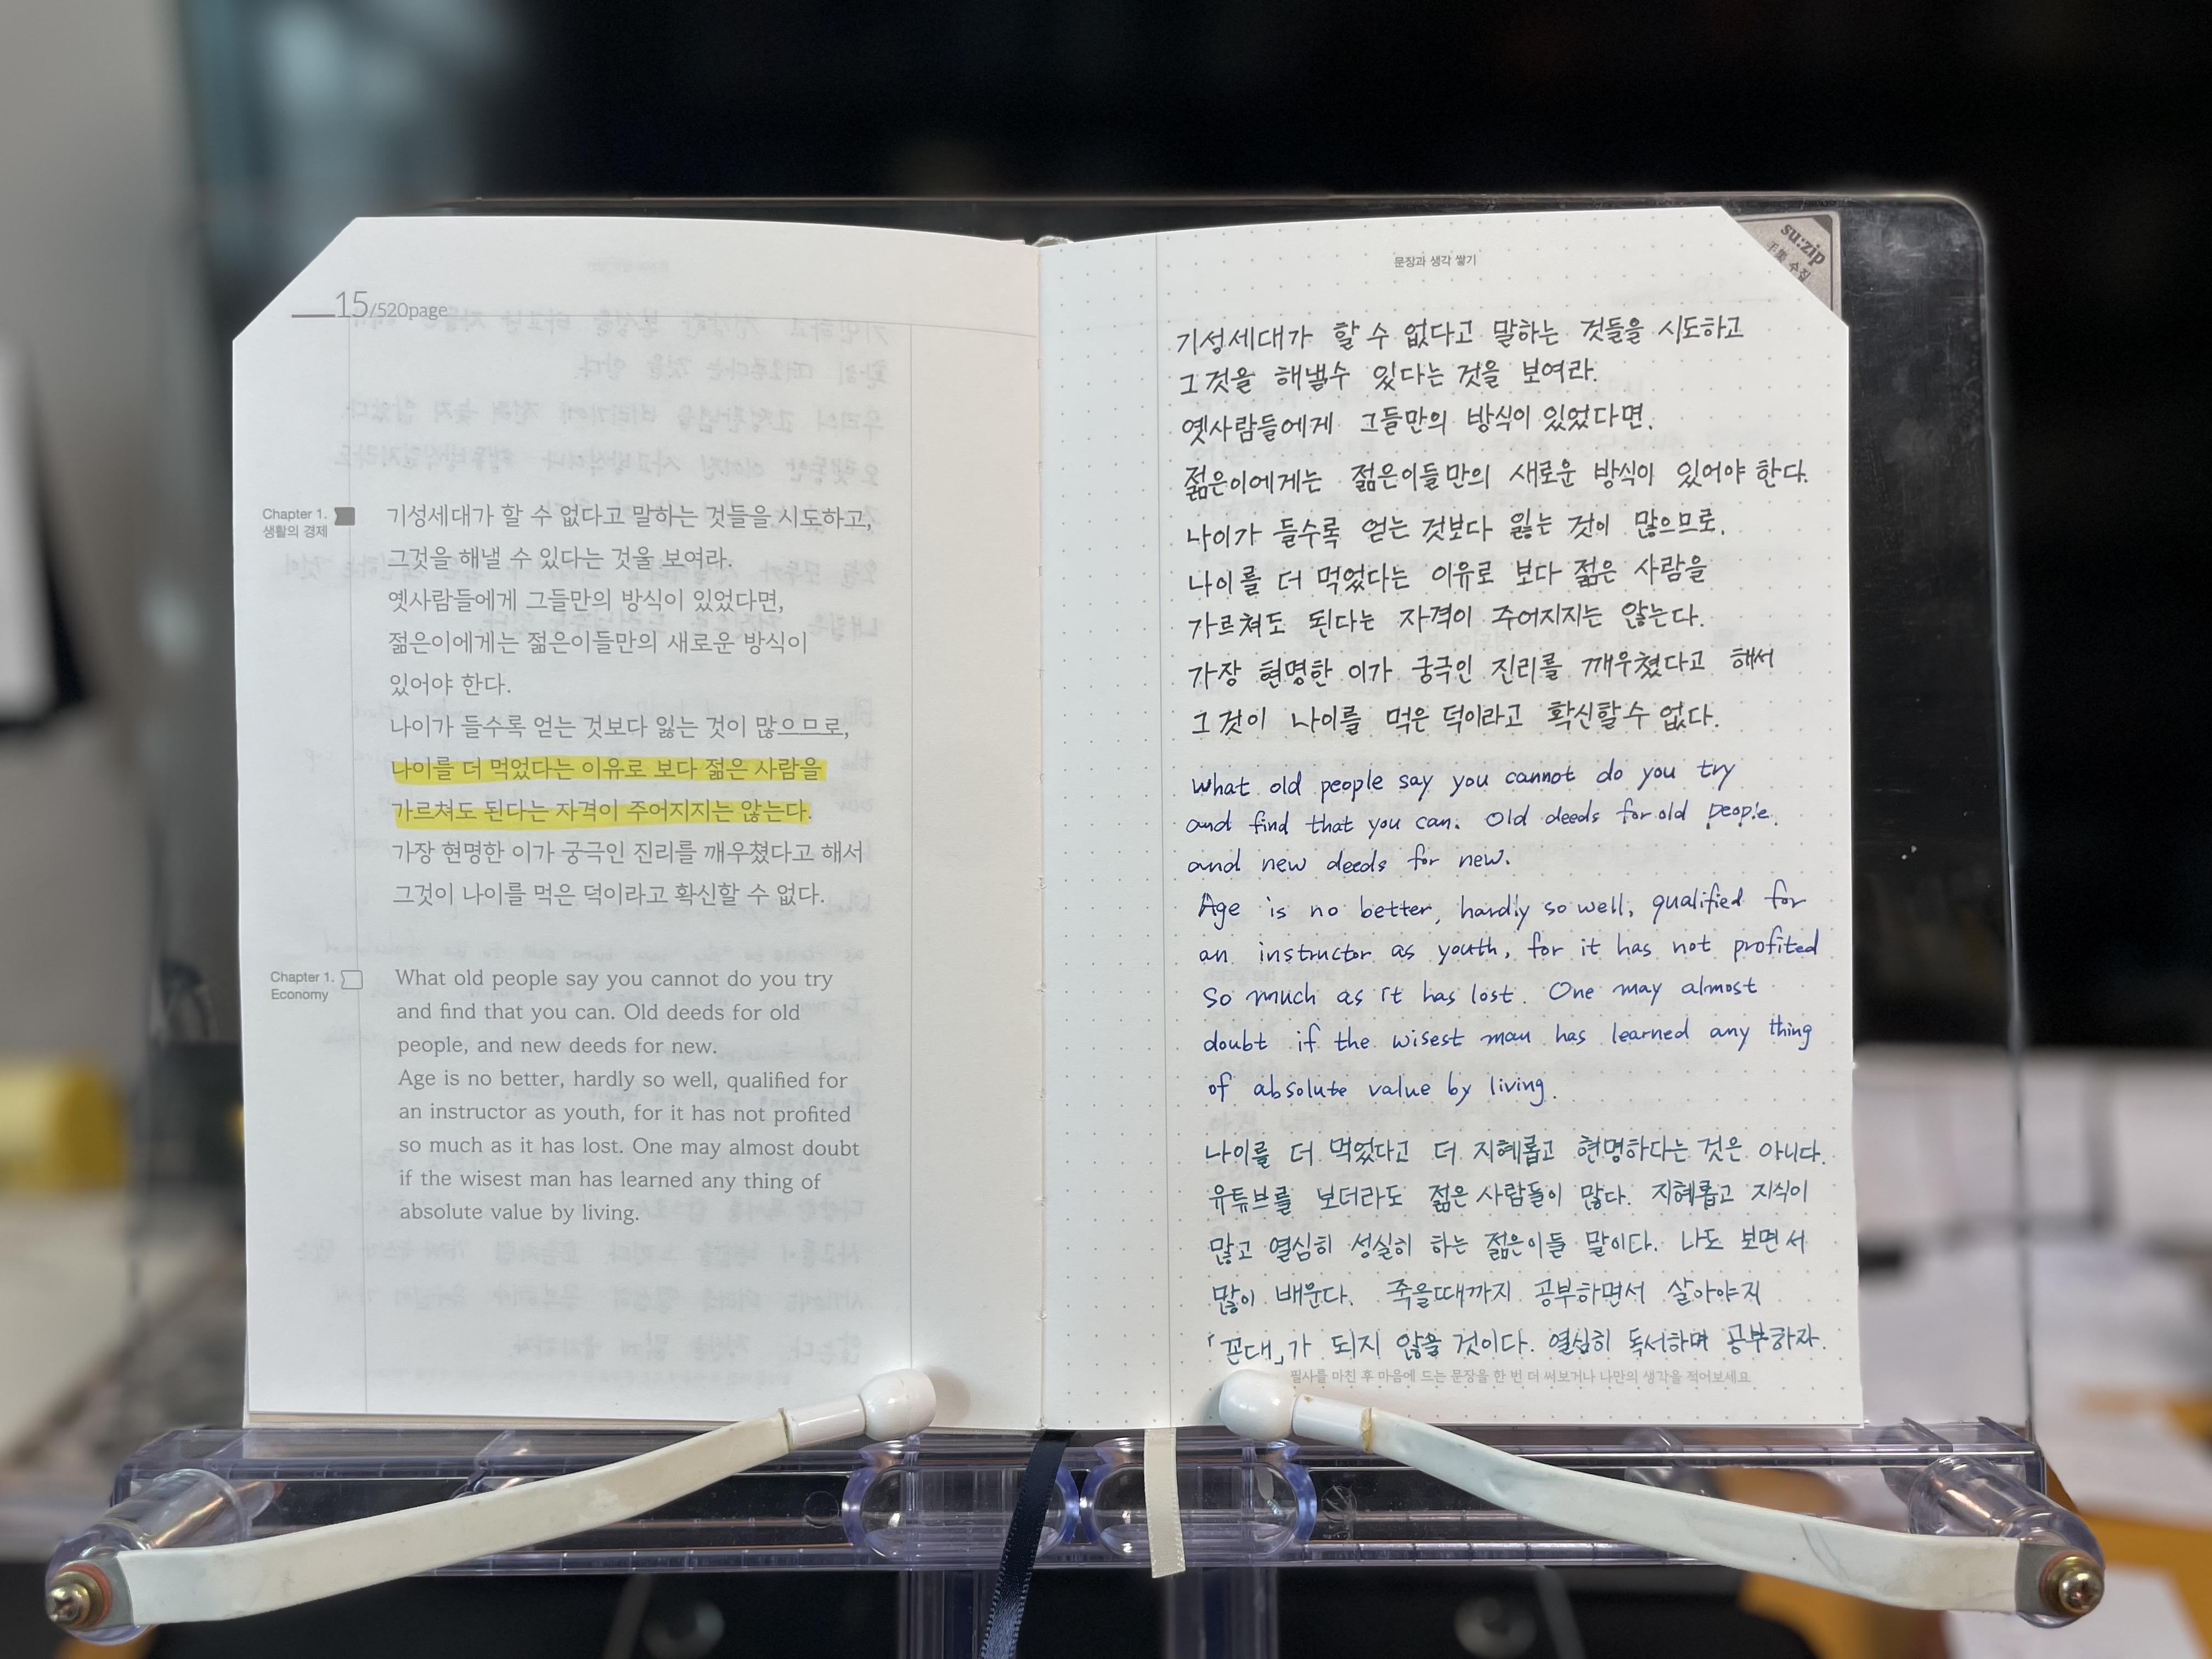 15/520page
Chapter 1.
생활의 경제
기성세대가 할 수 없다고 말하는 것들을 시도하고,
그것을 해낼 수 있다는 것울 보여라.
옛사람들에게 그들만의 방식이 있었다면,
젊은이에게는 젊은이들만의 새로운 방식이
있어야 한다.
나이가 들수록 얻는 것보다 잃는 것이 많으므로,
나이를 더 먹었다는 이유로 보다 젊은 사람을
가르쳐도 된다는 자격이 주어지지는 않는다.
가장 현명한 이가 궁극인 진리를 깨우쳤다고 해서
그것이 나이를 먹은 덕이라고 확신할 수 없다.
Chapter 1.
Economy
What old people say you cannot do you try
and find that you can. Old deeds for old
people, and new deeds for new.
Age is no better, hardly so well, qualified for
an instructor as youth, for it has not profited
so much as it has lost. One may almost doubt
if the wisest man has learned any thing of
absolute value by living.
문장과 생각 쌓기
su:zip
手集 수집
기성세대가 할 수 없다고 말하는 것들을 시도하고
그것을 해낼수 있다는 것을 보여라.
옛사람들에게 그들만의 방식이 있었다면.
젊은이에게는 젊은이들만의 새로운 방식이 있어야 한다.
나이가 들수록 얻는 것보다 잃는 것이 많으므로.
나이를 더 먹었다는 이유로 보다 젊은 사람을
가르쳐도 된다는 자격이 주어지지는 않는다.
가장 현명한 이가 궁극인 진리를 깨우쳤다고 해서
그것이 나이를 먹은 덕이라고 확신할수 없다.
What old people say you cannot do you try
and find that you can. Old deeds for old people.
and new deeds for new.
Age is no better, hardly so well, qualified for
an instructor as youth, for it has not profited
so much as it has lost. One may almost
doubt if the wisest man has learned any thing
of absolute value by living.
나이를 더 먹었다고 더 지혜롭고 현명하다는 것은 아니다.
유튜브를 보더라도 젊은 사람들이 많다. 지혜롭고 지식이
많고 열심히 성실히 하는 젊은이들 말이다. 나도 보면서
많이 배운다. 죽을때까지 공부하면서 살아야지
「꼰대」가 되지 않을 것이다. 열심히 독서하며 공부하자.
필사를 마친 후 마음에 드는 문장을 한 번 더 써보거나 나만의 생각을 적어보세요